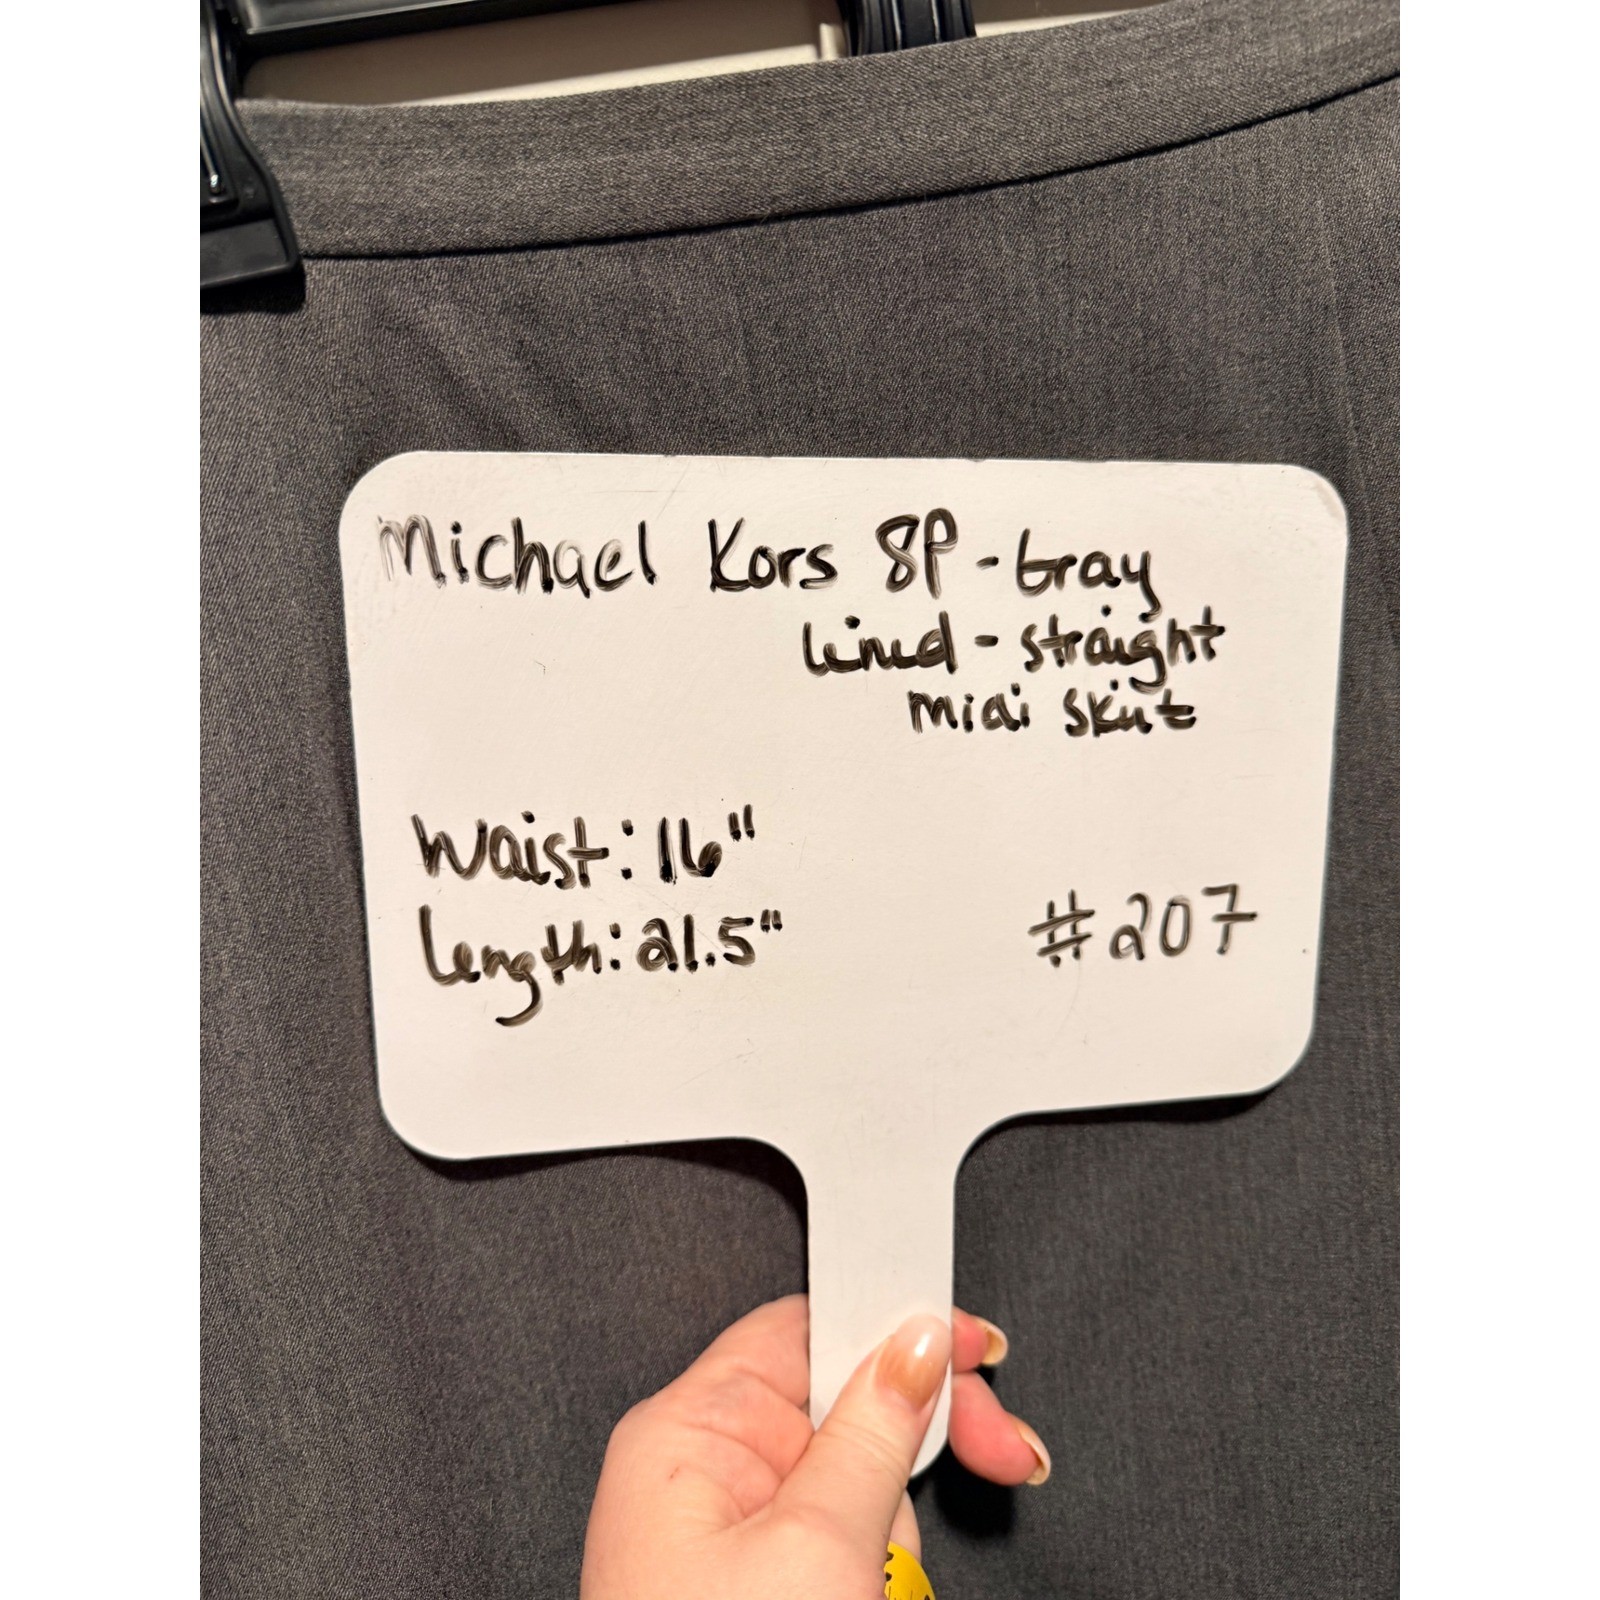 Michael Kors 8P - Gray
Lined - straight
midi skirt
Waist: 16"
Length: 21.5"
#207